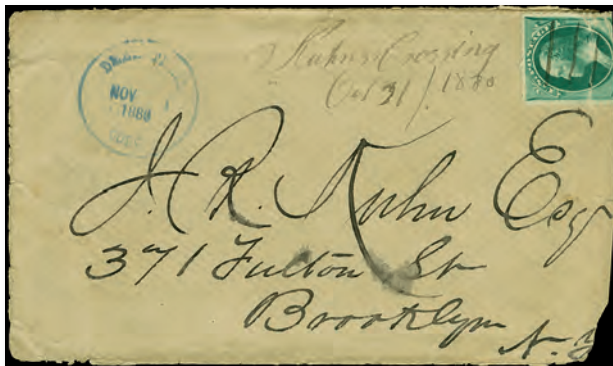 Kuhns Crossing
Oct 31/. 1880
NOV
1880
J. R. Kuhn Esq
371 Fulton St
Brooklyn
N. Y